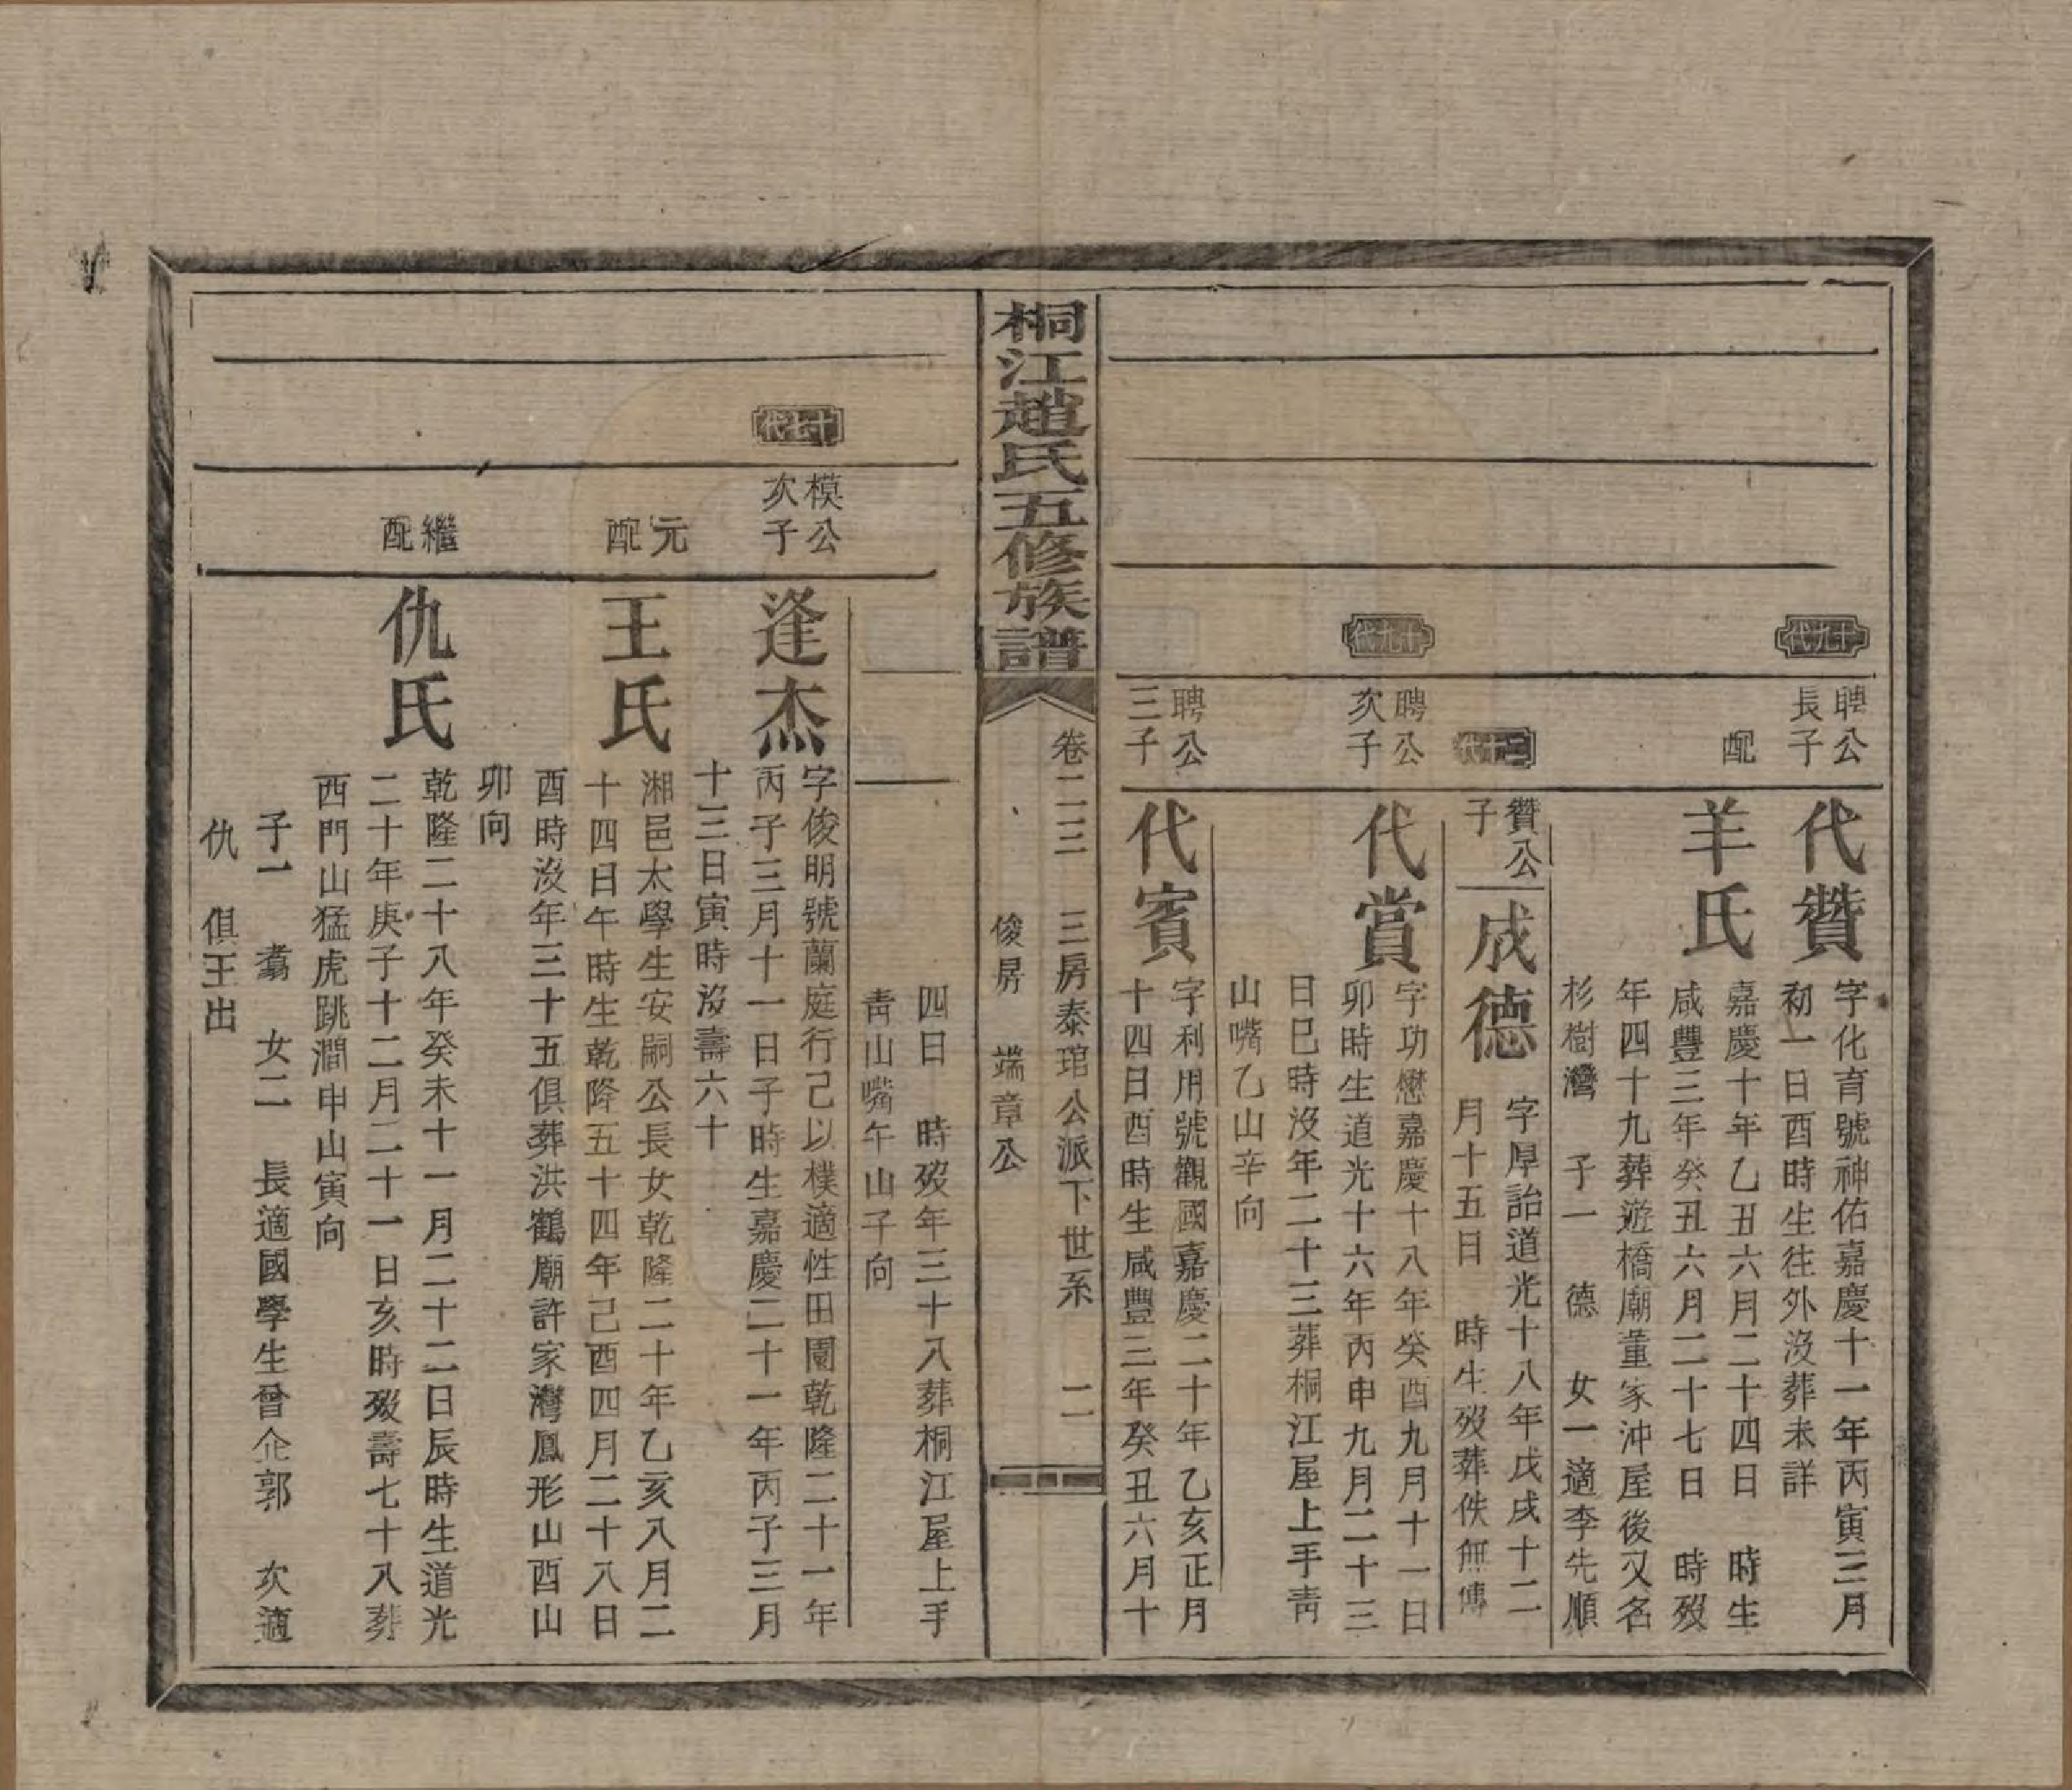 十九代
聘公
長子
代贊
字化育號神佑嘉慶十一年丙寅三月
初一日酉時生往外沒葬未詳
配
羊氏
嘉慶十年乙丑六月二十四日　時生
咸豐三年癸丑六月二十七日　時歿
年四十九葬遊橋廟董家沖屋後又名
杉樹灣　子一　德　女一適李先順
二十代
贊公
子
成德
字厚詒道光十八年戊戌十二
月十五日　時生歿葬佚無傳
十九代
聘公
次子
代賞
字功懋嘉慶十八年癸酉九月十一日
卯時生道光十六年丙申九月二十三
日巳時沒年二十三葬桐江屋上手靑
山嘴乙山辛向
聘公
三子
代賓
字利用號觀國嘉慶二十年乙亥正月
十四日酉時生咸豐三年癸丑六月十
桐江趙氏五修族譜
卷二三　三房泰琯公派下世系　二
俊房　端章公
四日　時歿年三十八葬桐江屋上手
靑山嘴午山子向
十七代
模公
次子
逢杰
字俊明號蘭庭行己以樸適性田園乾隆二十一年
丙子三月十一日子時生嘉慶二十一年丙子三月
十三日寅時沒壽六十
元
配
王氏
湘邑太學生安嗣公長女乾隆二十年乙亥八月二
十四日午時生乾隆五十四年己酉四月二十八日
酉時沒年三十五俱葬洪鶴廟許家灣鳳形山酉山
卯向
繼
配
仇氏
乾隆二十八年癸未十一月二十二日辰時生道光
二十年庚子十二月二十一日亥時歿壽七十八葬
西門山猛虎跳澗申山寅向
子一　翥　女二　長適國學生曾企郭　次適
仇　俱王出